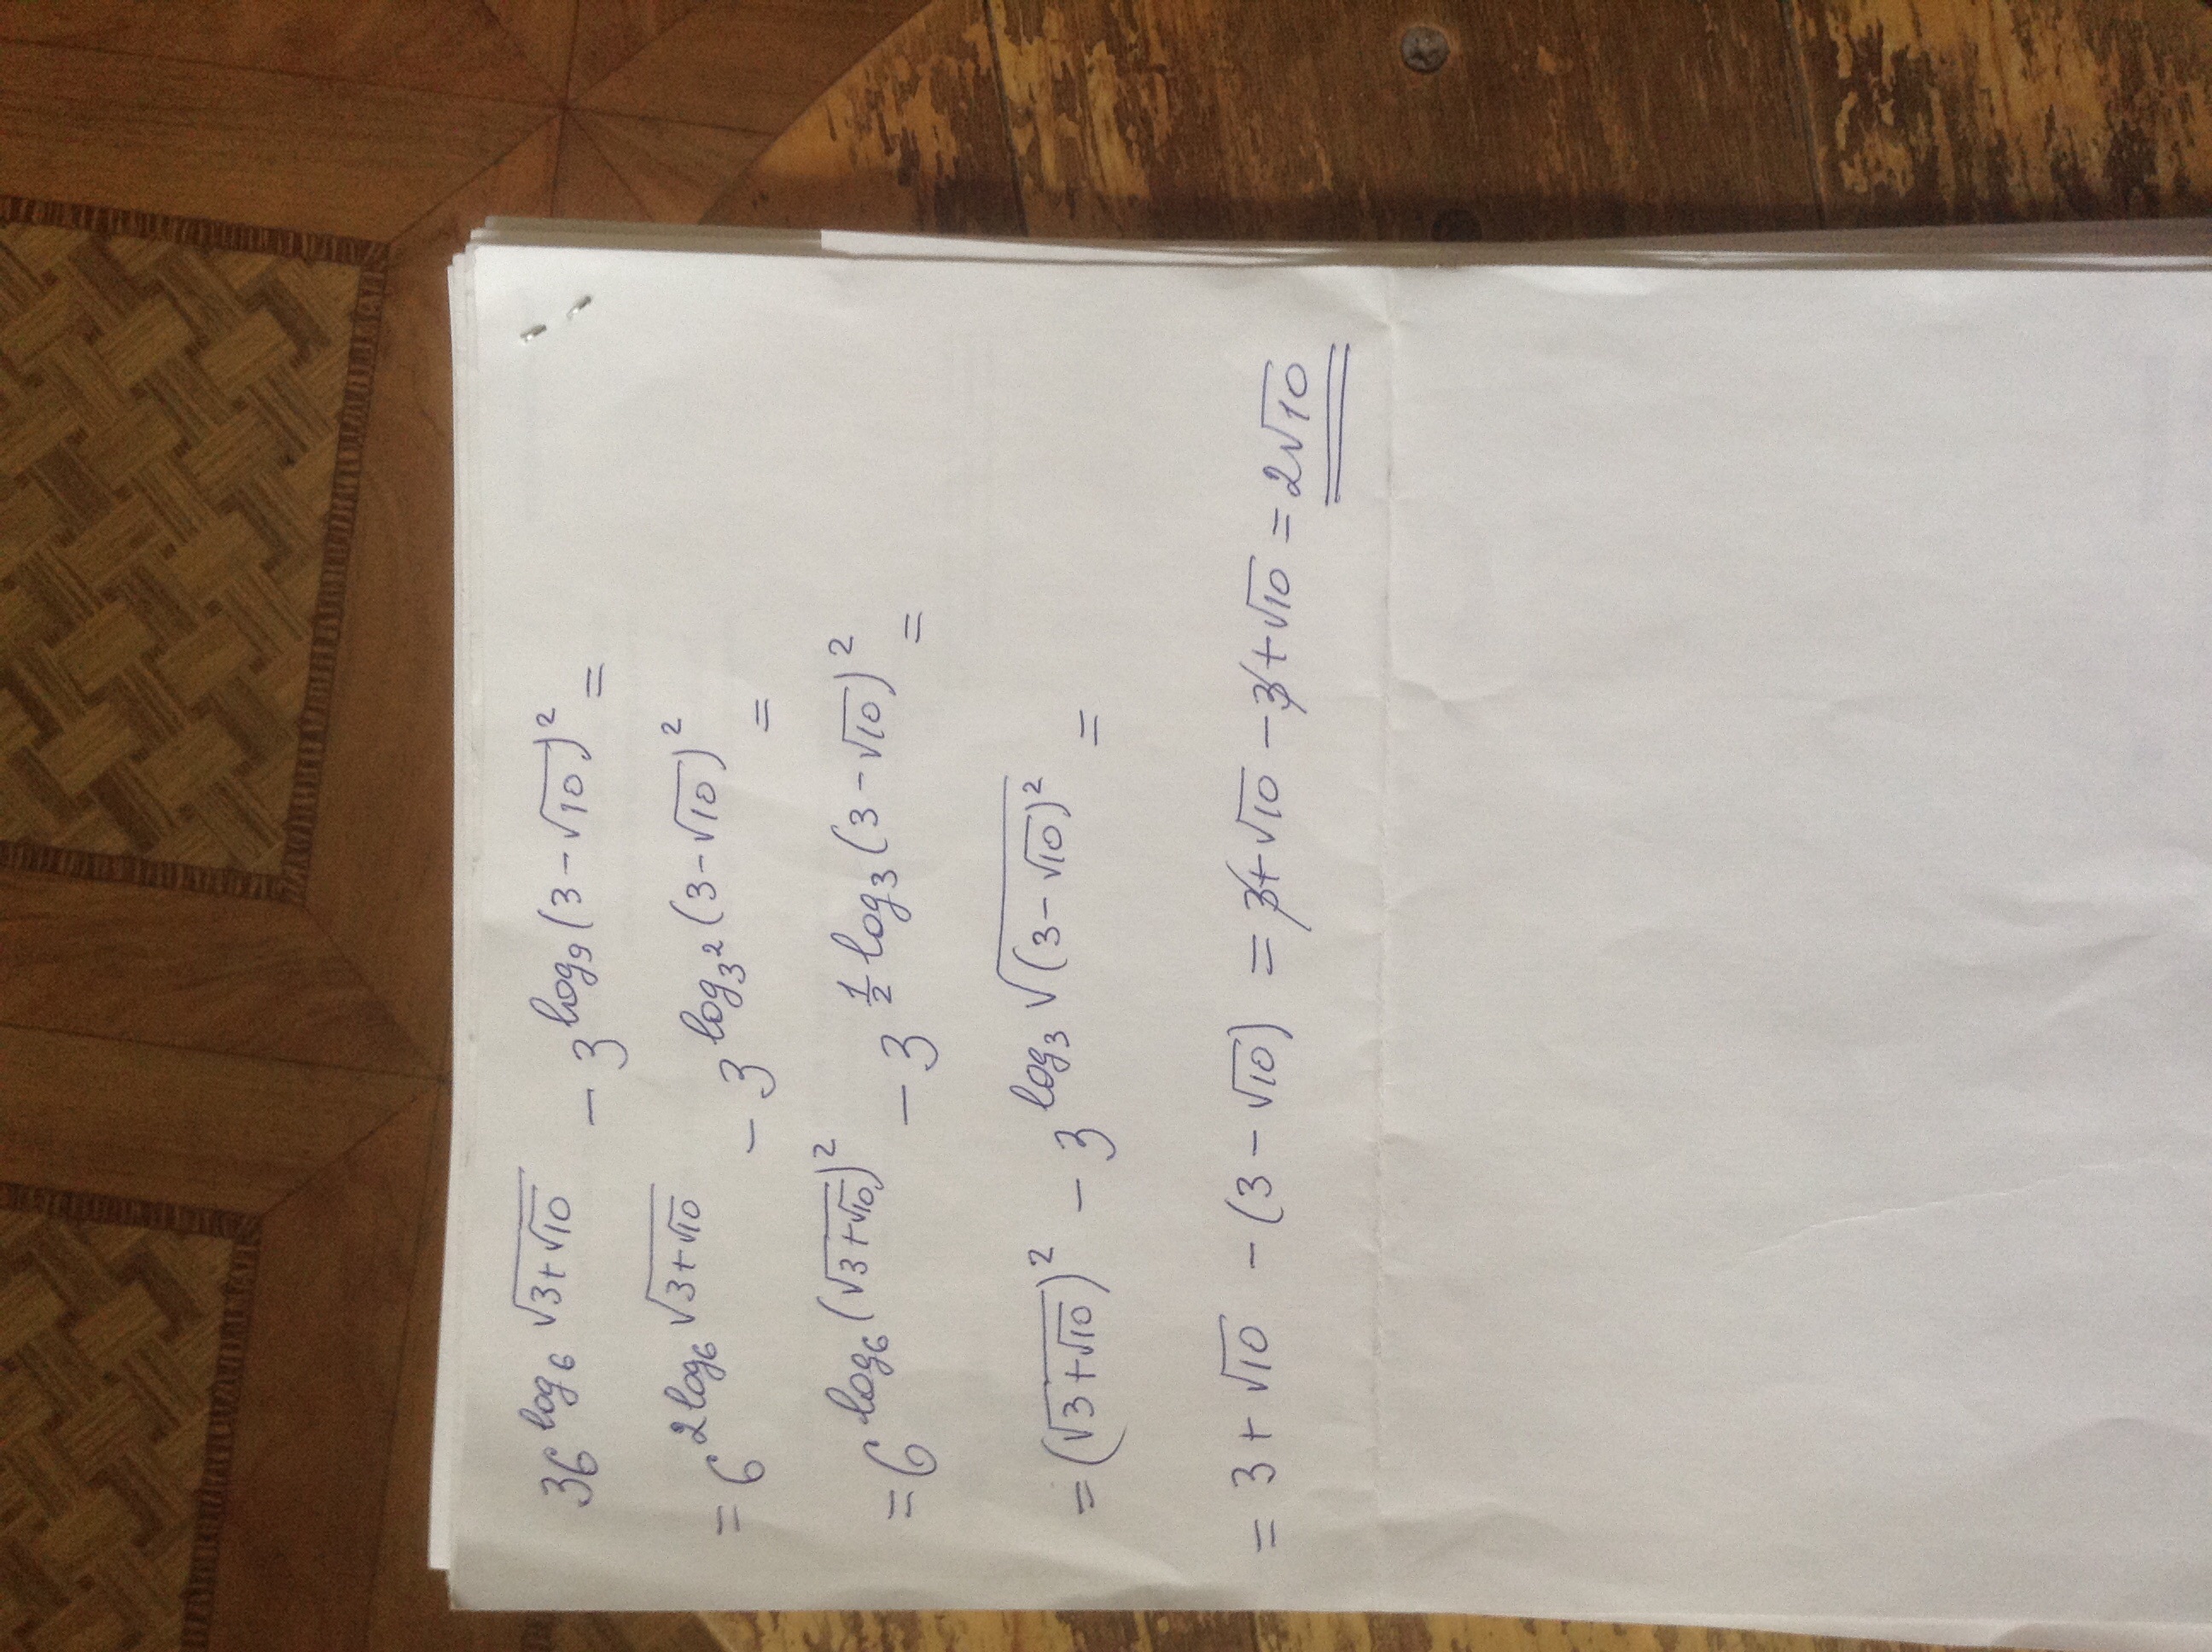 36^{log₆ √(3+√10)} − 3^{log₉ (3−√10)²} =
= 6^{2 log₆ √(3+√10)} − 3^{log_{3²} (3−√10)²} =
= 6^{log₆ (√(3+√10))²} − 3^{½ log₃ (3−√10)²} =
= (√(3+√10))² − 3^{log₃ √((3−√10)²)} =
= 3 + √10 − (3 − √10) = 3 + √10 − 3 + √10 = 2√10